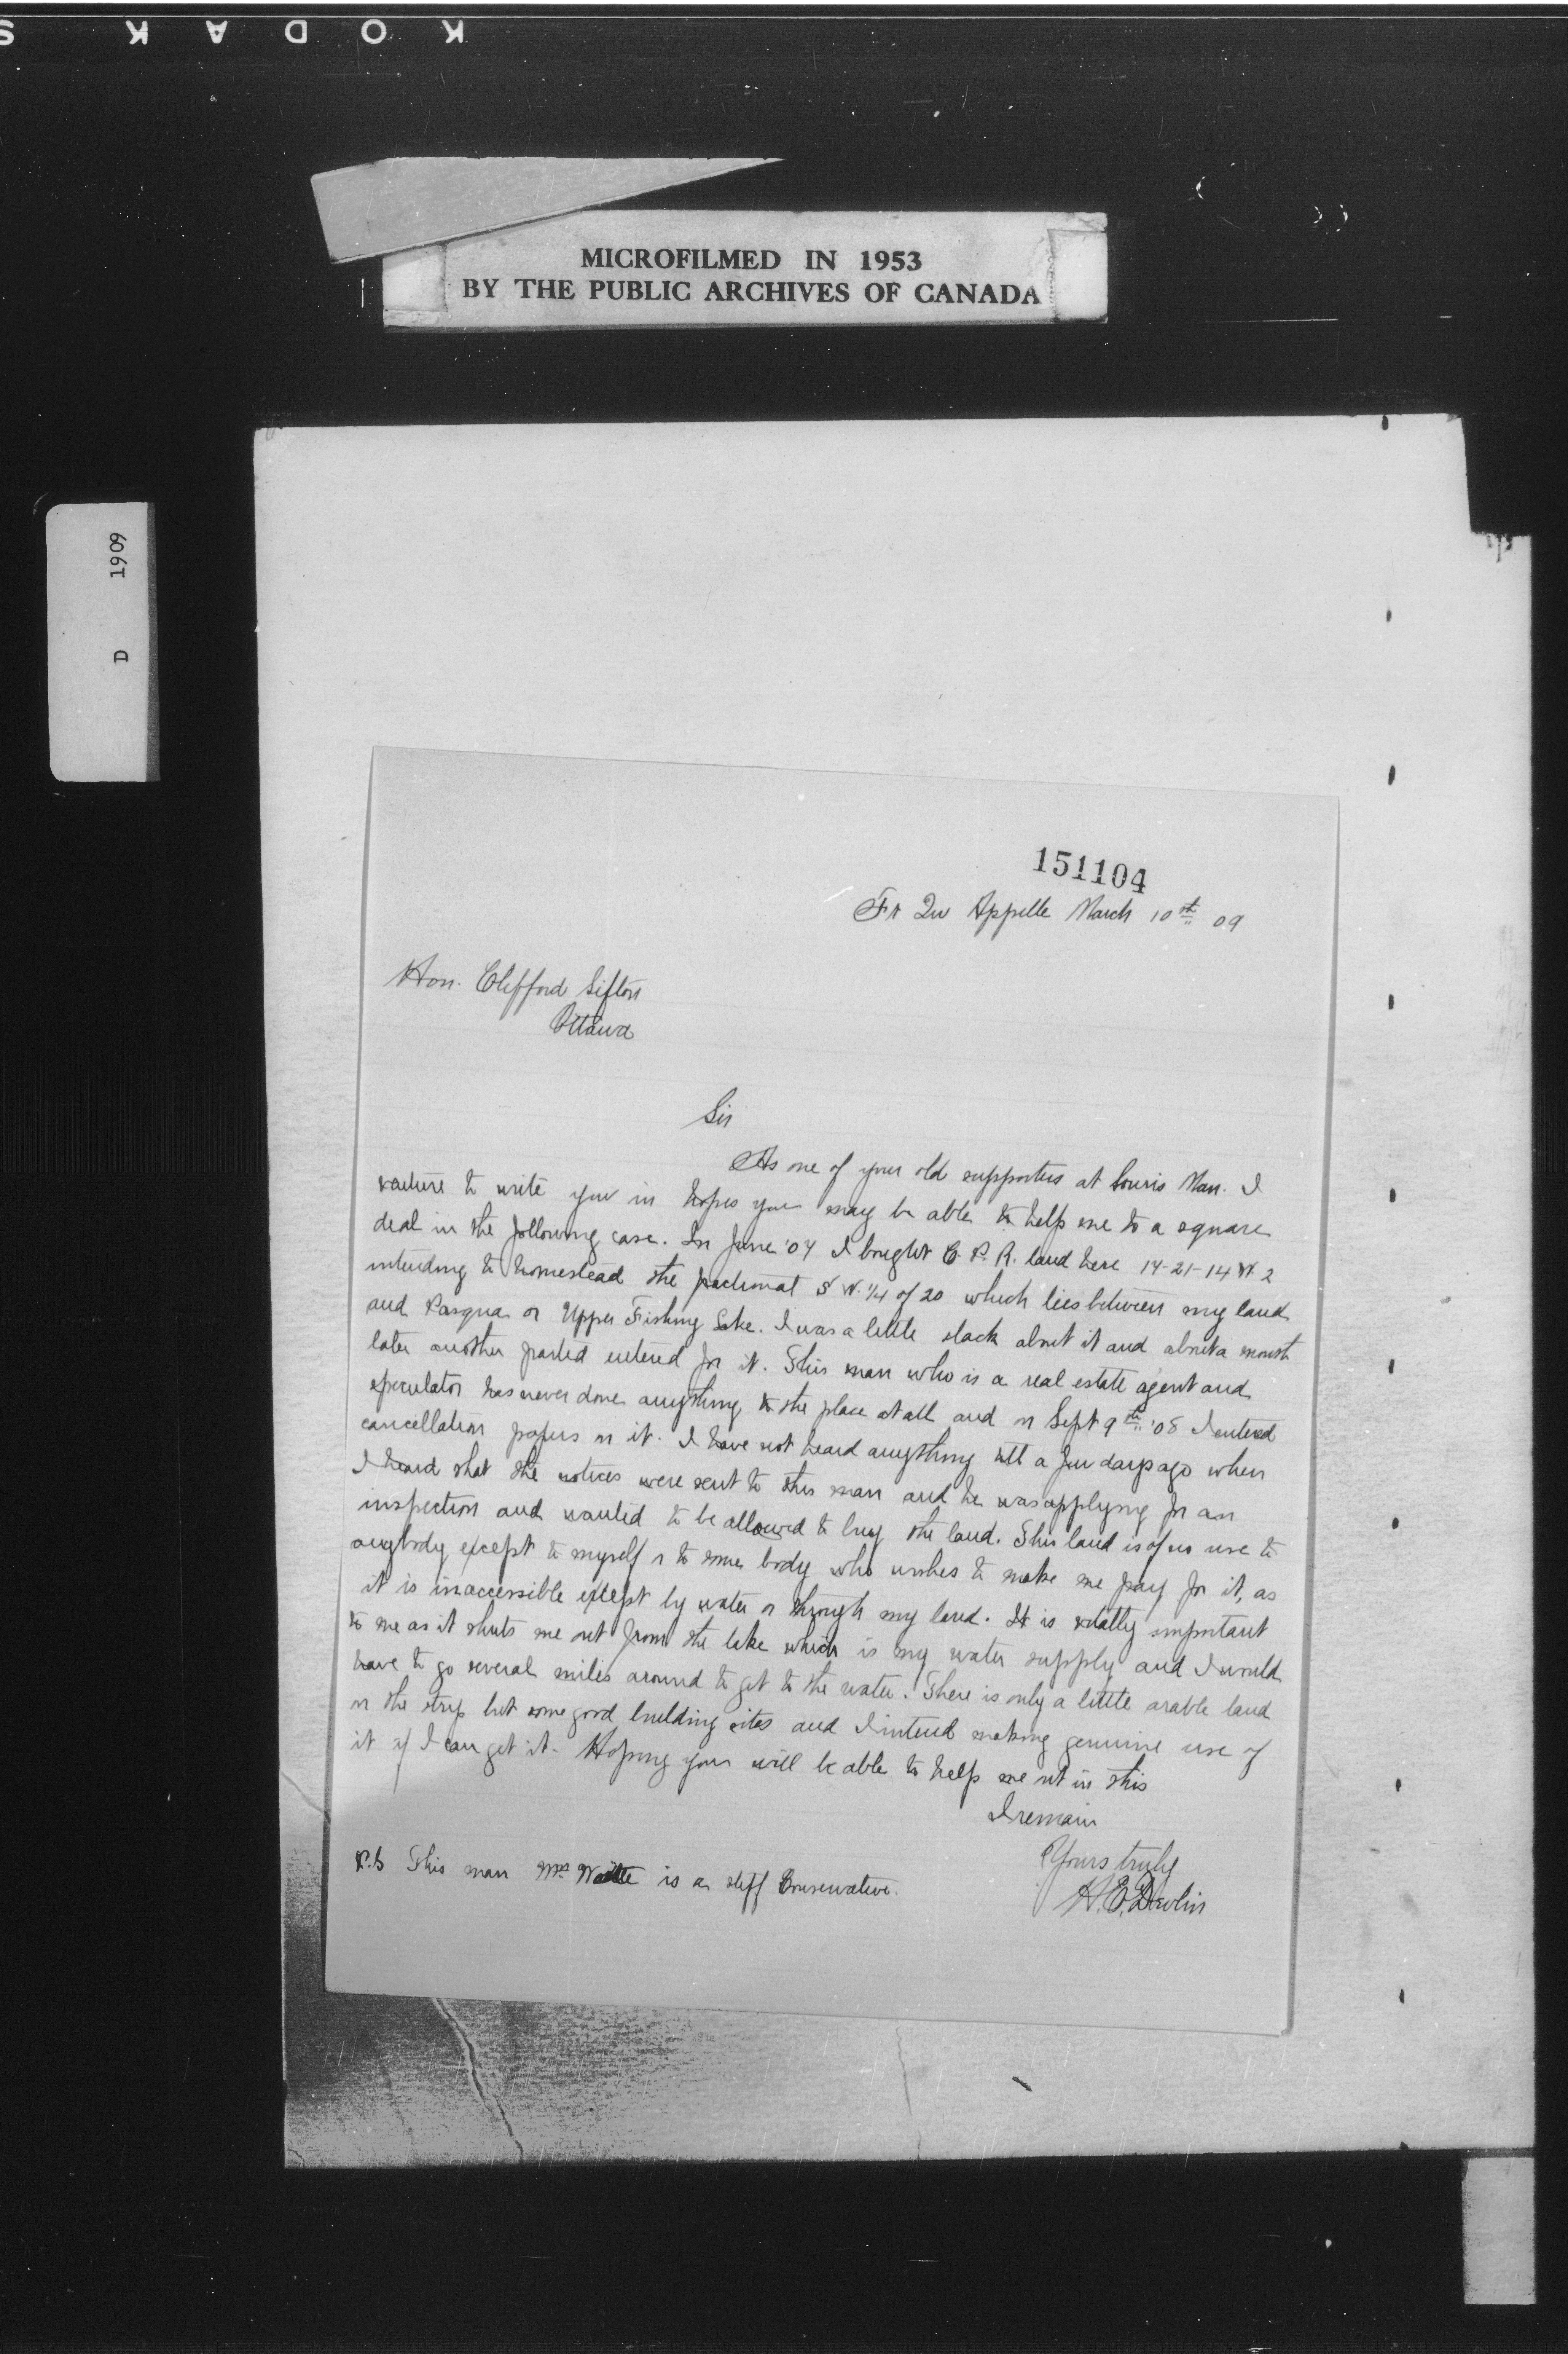 KODAK S
MICROFILMED IN 1953
BY THE PUBLIC ARCHIVES OF CANADA
D 1909
151104
Ft Qu Appelle March 10th 09
Hon. Clifford Sifton
Ottawa
Sir
As one of your old supporters at Souris Man. I
venture to write you in hopes you may be able to help me to a square
deal in the following case. In June '07 I bought C.P.R. land here 17-21-14 W. 2
intending to homestead the fractional S W. 1/4 of 20 which lies between my land
and Pasqua or Upper Fishing Lake. I was a little slack about it and about a month
later another parted entered for it. This man who is a real estate agent and
speculator has never done anything to the place at all and on Sept 9th '08 I entered
cancellation papers on it. I have not heard anything till a few days ago when
I heard that the notices were sent to this man and he was applying for an
inspection and wanted to be allowed to buy the land. This land is of no use to
anybody except to myself or to some body who wishes to make me pay for it, as
it is inaccessible except by water or through my land. It is vitally important
to me as it shuts me out from the lake which is my water supply and I would
have to go several miles around to get to the water. There is only a little arable land
on the strip but some good building sites and I intend making genuine use of
it if I can get it. Hoping you will be able to help me out in this
I remain
Yours truly
H. E. Devlin
P.S This man Mr is a stiff Conservative.